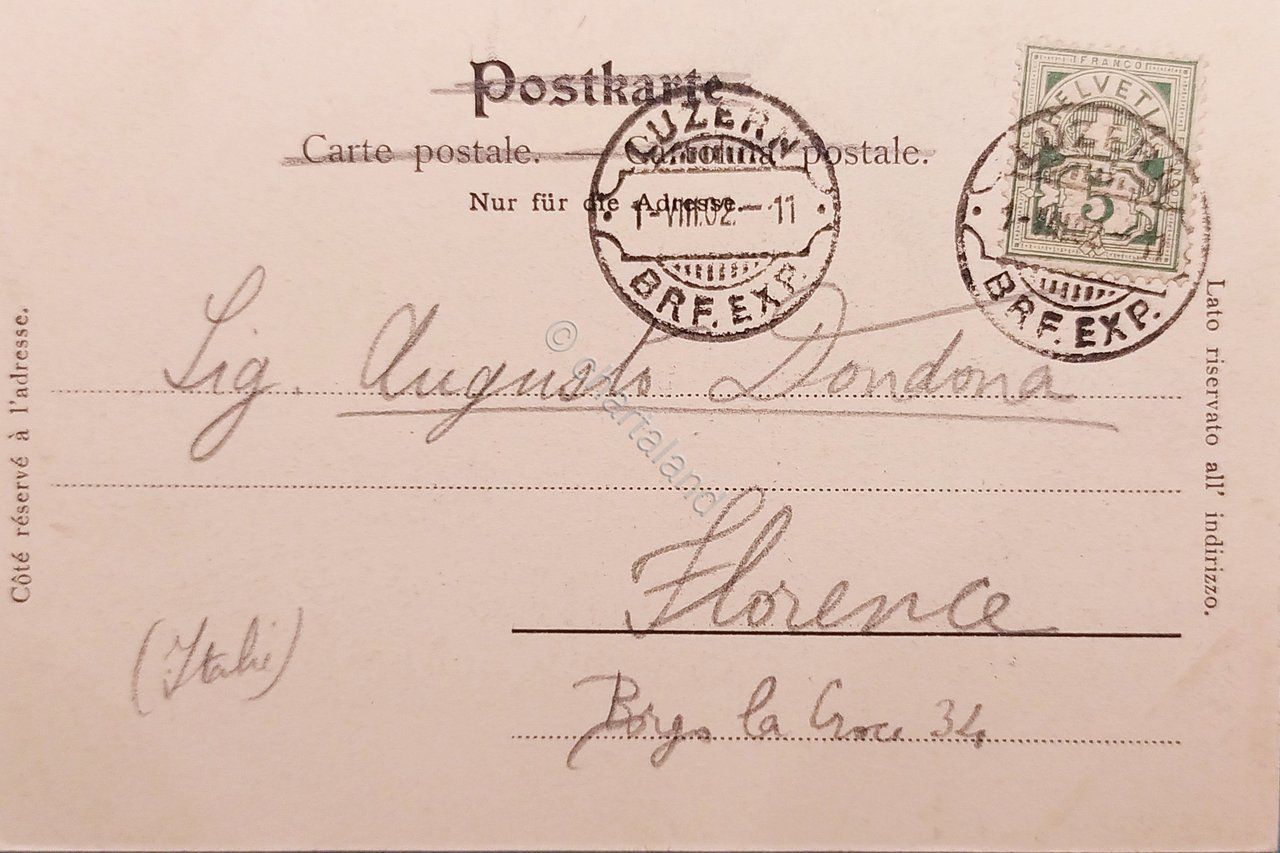 Postkarte
Carte postale. — Cartolina postale.
Nur für die Adresse.
LUZERN
1-VIII.02.-11
BRF.EXP.
FRANCO
HELVETIA
5
LUZERN
BRF.EXP.
Côté réservé à l'adresse.
Lato riservato all' indirizzo.
Sig. Augusto Dondona
© chartaland
Florence
(Italie)
Borgo la Croce 34